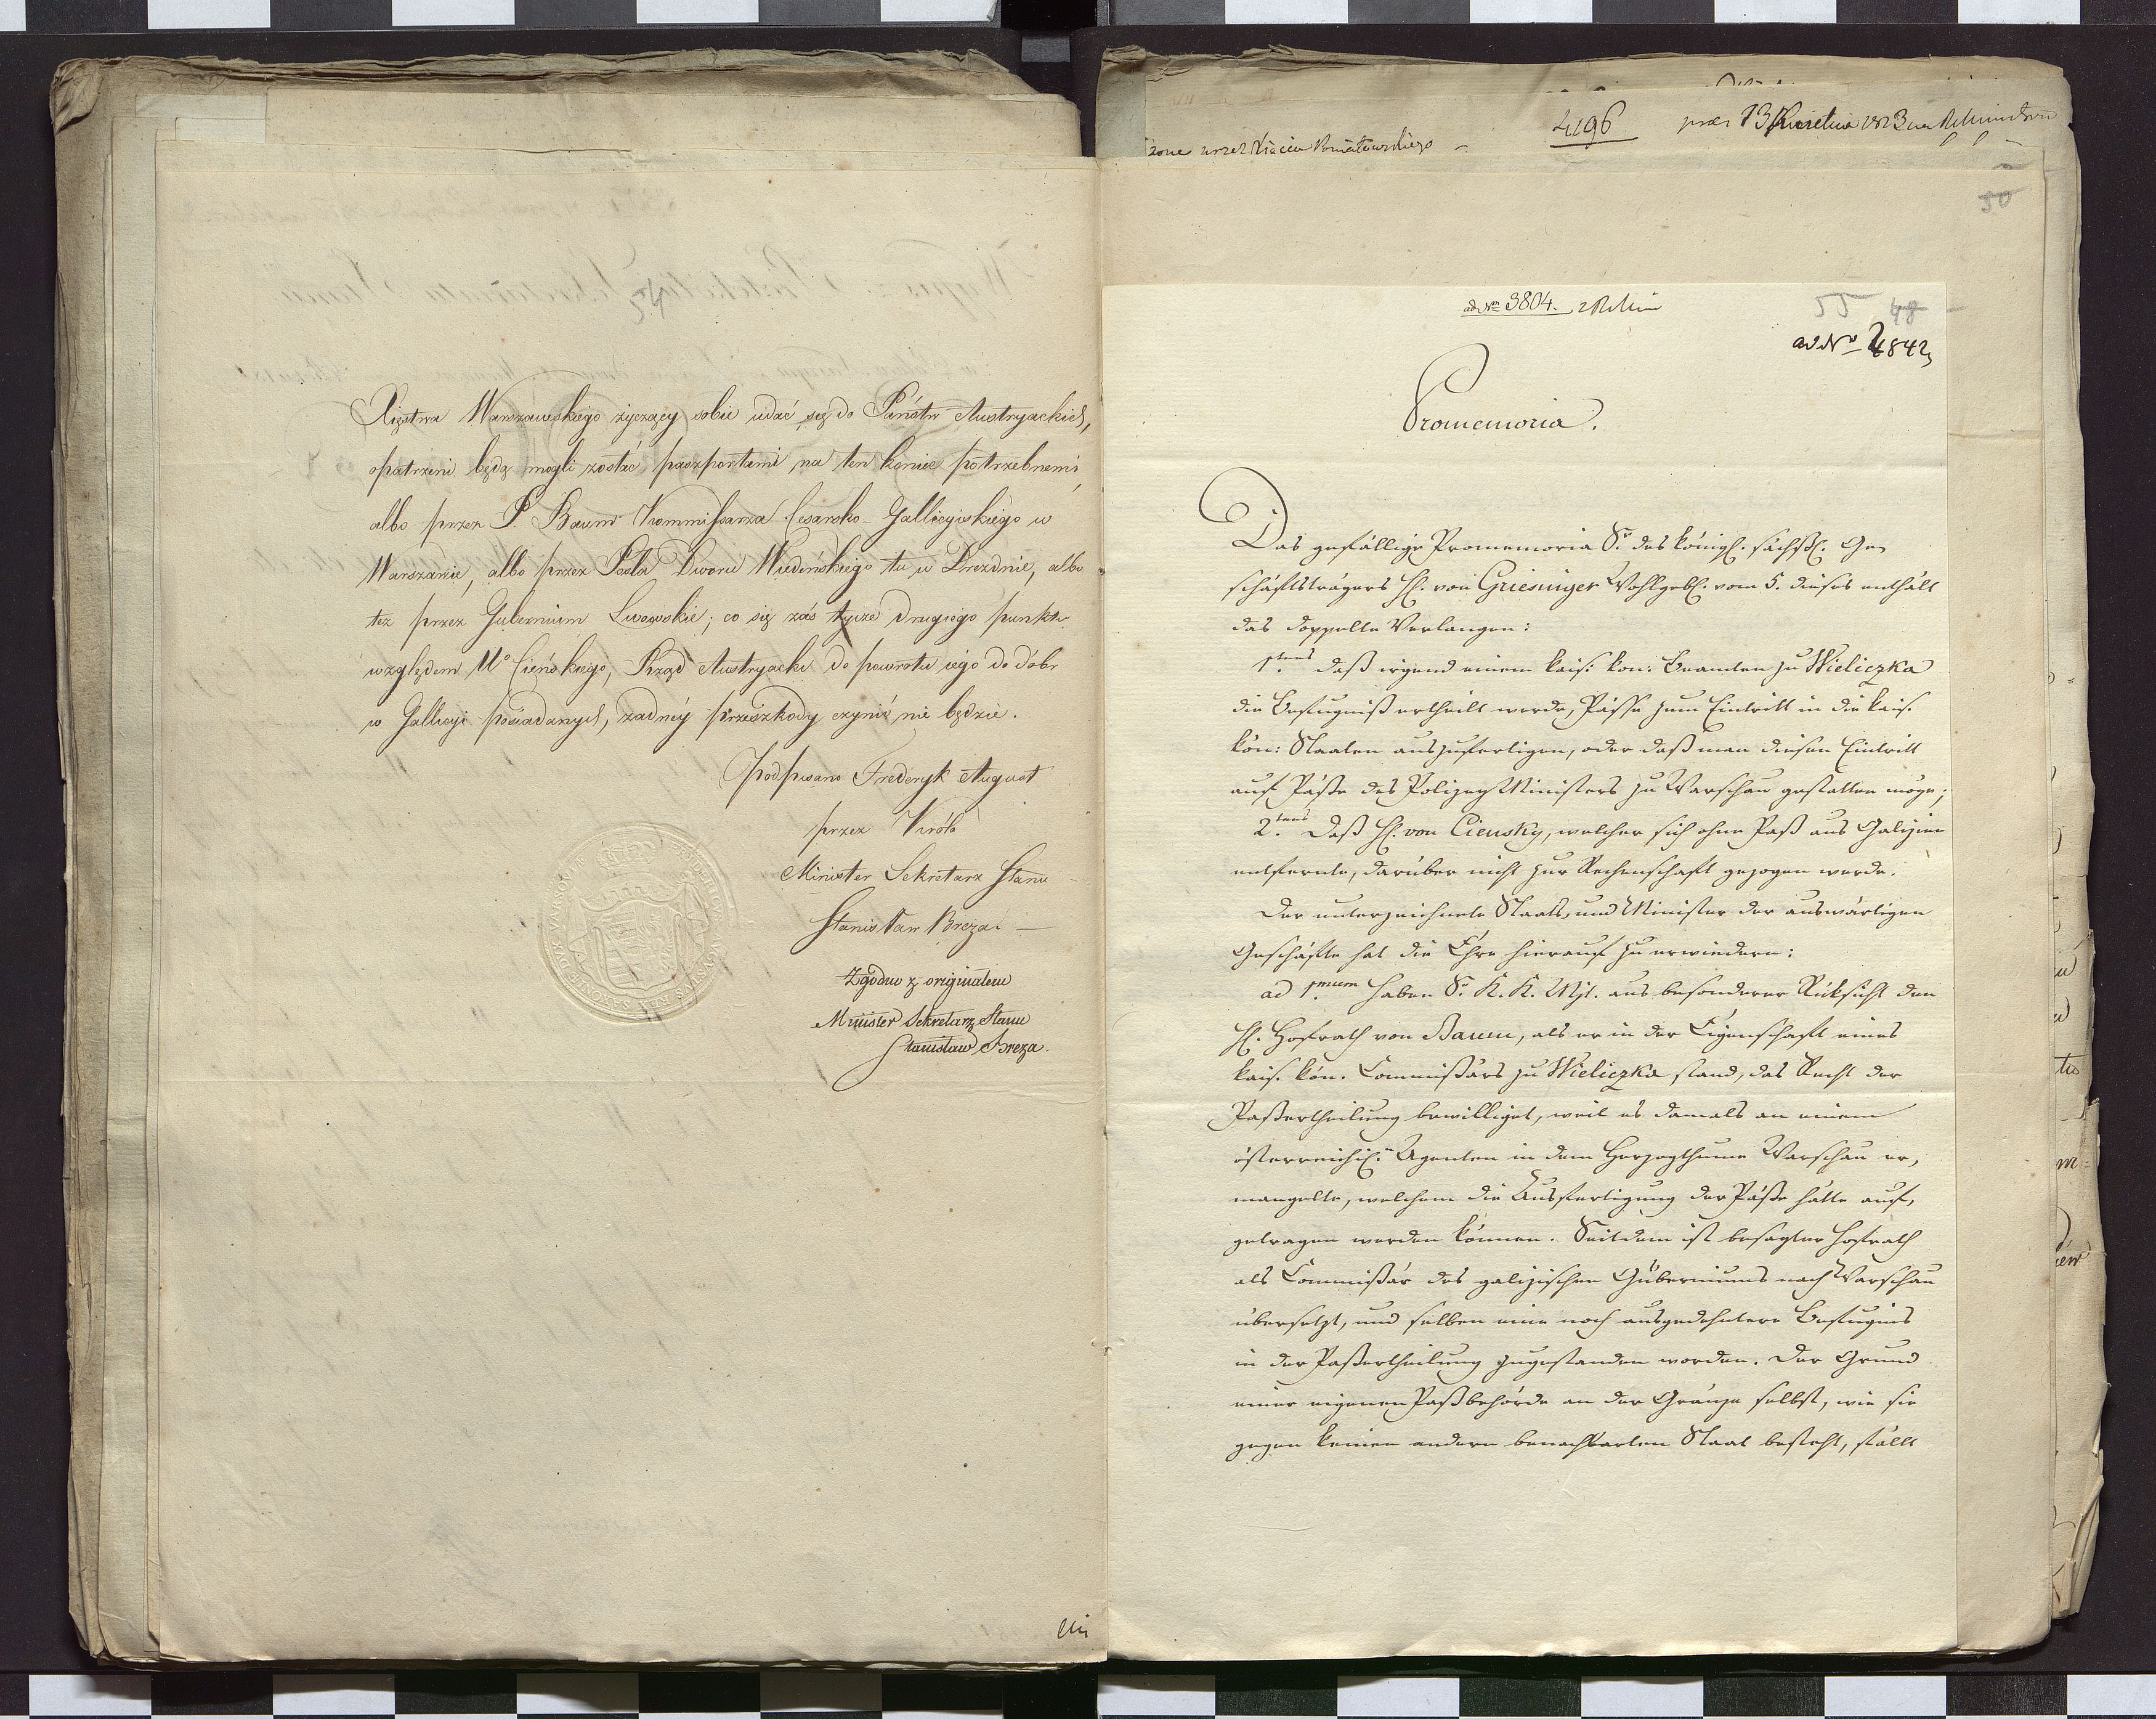 Xięstwa Warszawskiego życzący sobie udać się do Państw Austryackich,
opatrzeni będą mogli zostać paszportami na ten koniec potrzebnemi,
albo przez P. Baum Kommissarza Cesarsko-Gallicyiskiego w
Warszawie, albo przez Posła Dworu Wiedeńskiego tu w Dreznie, albo
też przez Gubernium Lwowskie; co się zaś tycze drugiego punktu
względem Uo Cieńskiego, Rząd Austryacki do powrotu iego do dóbr
w Gallicyi posiadanych, żadnéy przeszkody czynić nie będzie.
Podpisano Frederyk August
przez Króla
Minister Sekretarz Stanu
Stanisław Breza
Zgodno z originałem
Minister Sekretarz Stanu
Stanisław Breza.
4196
13 Kwietnia
30
ad Nrm 3804.
55 48
ad No 4842
Promemoria.
Das gefällige Promemoria Sr. des königl. sächß. Ge-
schäftsträgers H. von Griesinger Wohlgeb. vom 5. dieses enthält
das doppelte Verlangen:
1tens daß irgend einem kais: kön: Beamten zu Wieliczka
die Befugniß ertheilt werde, Pässe zum Eintritt in die kais.
kön: Staaten auszufertigen, oder daß man diesen Eintritt
auf Päße des Polizey Ministers zu Warschau gestatten möge;
2tens daß H. von Ciensky, welcher sich ohne Paß aus Galizien
entfernte, darüber nicht zur Rechenschaft gezogen werde.
Der unterzeichnete Staats- und Minister der auswärtigen
Geschäfte hat die Ehre hierauf zu erwiedern:
ad 1mum haben Se. K. K. Mjt. aus besonderer Rüksicht dem
H. Hofrath von Baum, als er in der Eigenschaft eines
kais. kön. Commißärs zu Wieliczka stand, das Recht der
Paßertheilung bewilliget, weil es damals an einem
österreichil. Agenten in dem Herzogthume Warschau er-
mangelte, welchem die Ausfertigung der Päße hätte auf-
getragen werden können. Seitdem ist besagter Hofrath
als Commißär des galizischen Guberniums nach Warschau
übersetzt, und selben eine noch ausgedehntere Befugniß
in der Paßertheilung zugestanden worden. Der Grund
einer eigenen Paßbehörde an der Gränze selbst, wie sie
gegen keinen andern benachbarten Staat besteht, fällt